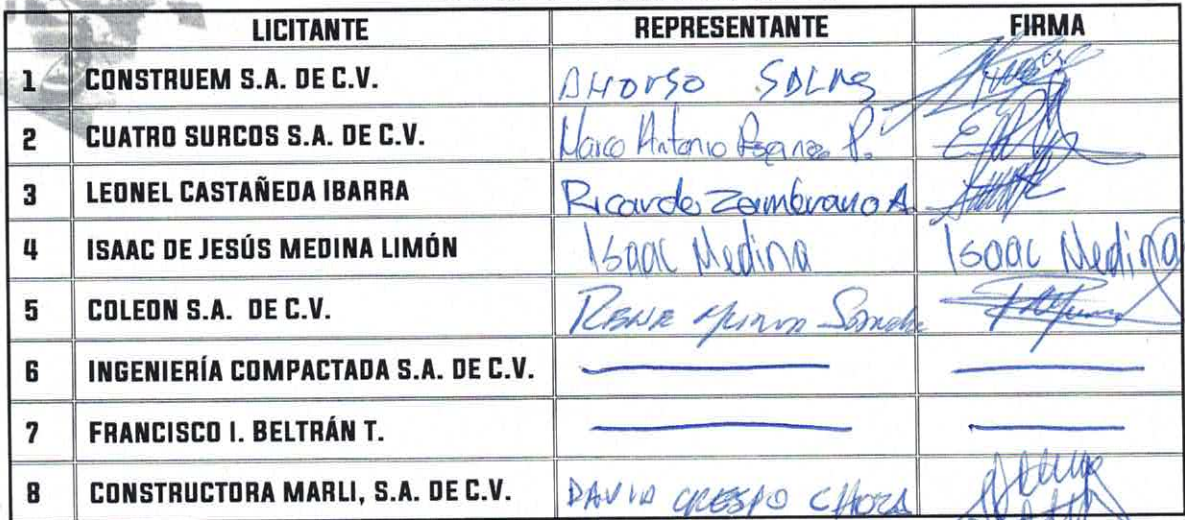 LICITANTE REPRESENTANTE FIRMA
1 CONSTRUEM S.A. DE C.V.
2 CUATRO SURCOS S.A. DE C.V. Marco Antonio P.
3 LEONEL CASTAÑEDA IBARRA Ricardo Zambrano A.
4 ISAAC DE JESÚS MEDINA LIMÓN Isaac Medina Isaac Medina
5 COLEON S.A. DE C.V. RENE
6 INGENIERÍA COMPACTADA S.A. DE C.V.
7 FRANCISCO I. BELTRÁN T.
8 CONSTRUCTORA MARLI, S.A. DE C.V. DAVID CRESPO